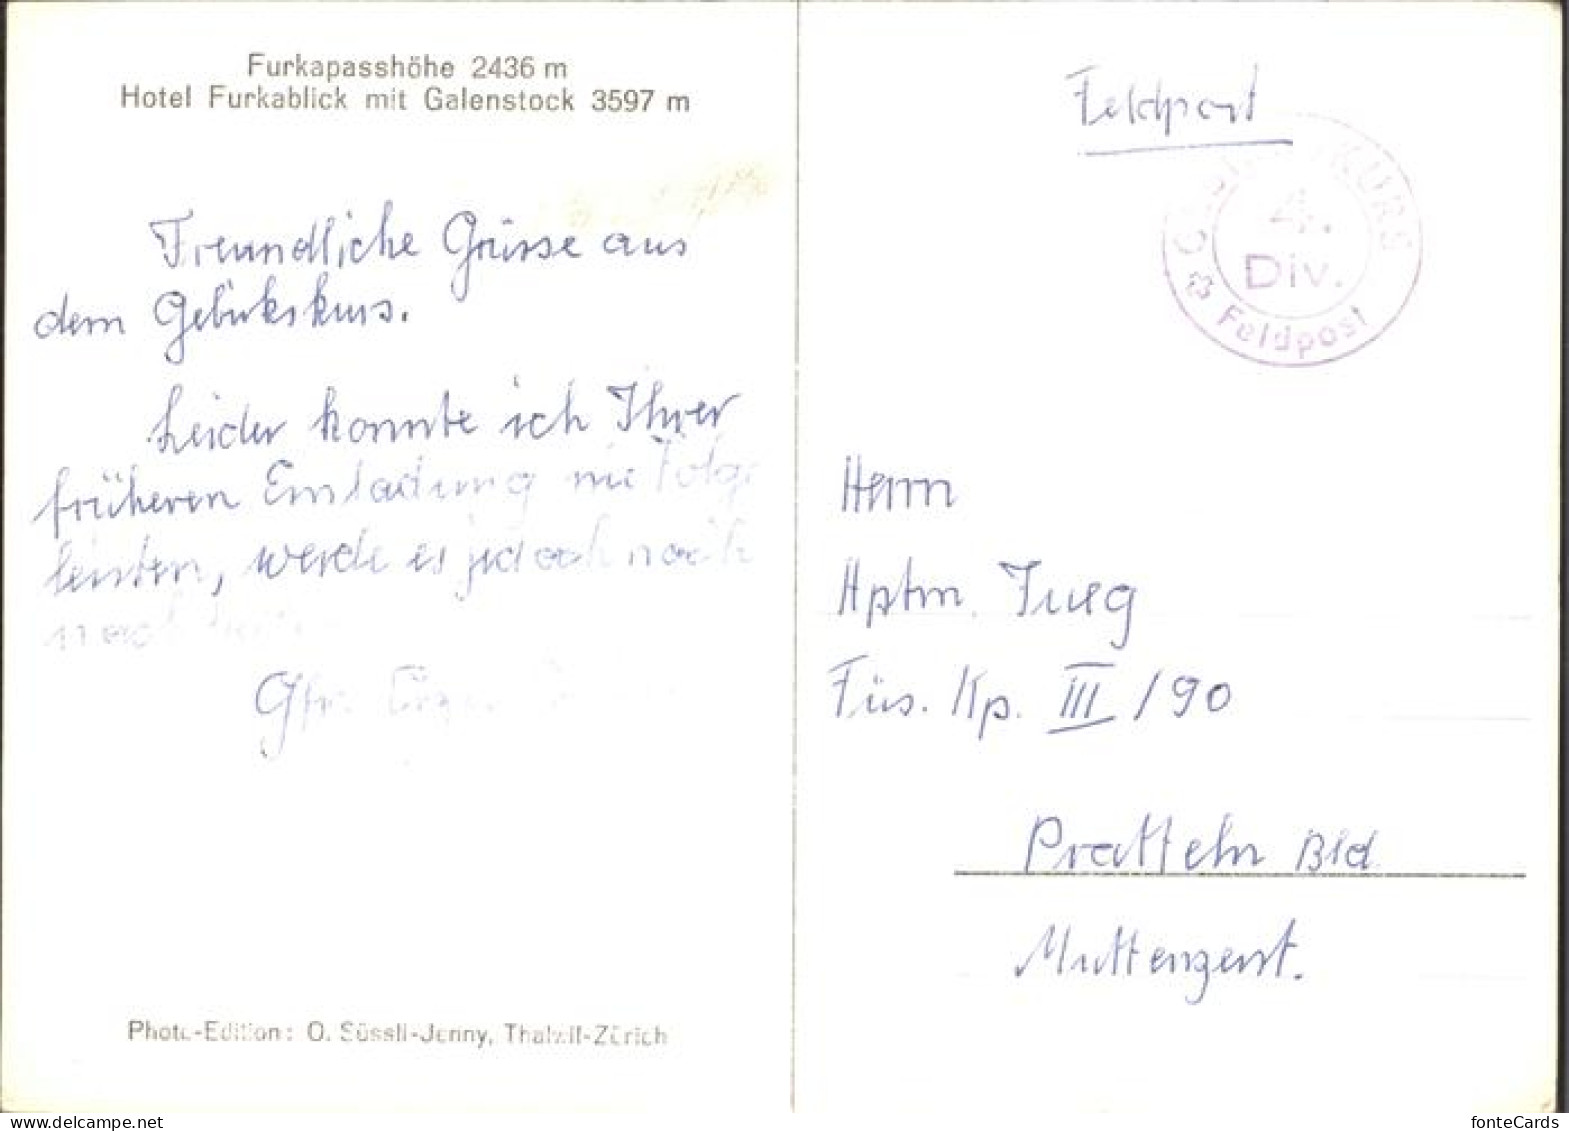 Furkapasshöhe 2436 m
Hotel Furkablick mit Galenstock 3597 m
Freundliche Grüsse aus
dem Gebirkskurs.
Leider konnte ich Ihrer
früheren Einladung nie Folge
leisten, werde es jedoch noch
Gfr.
Photo-Edition: O. Süssli-Jenny, Thalwil-Zürich
Feldpost
KURS
4.
Div.
Feldpost
Herrn
Hptm.
Füs. Kp. III / 90
Pratteln Bld.
fonteCards